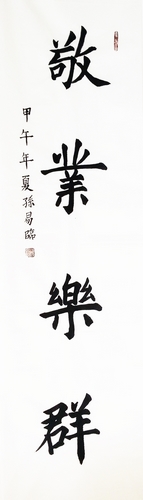 敬業樂群
甲午年夏孫易臨